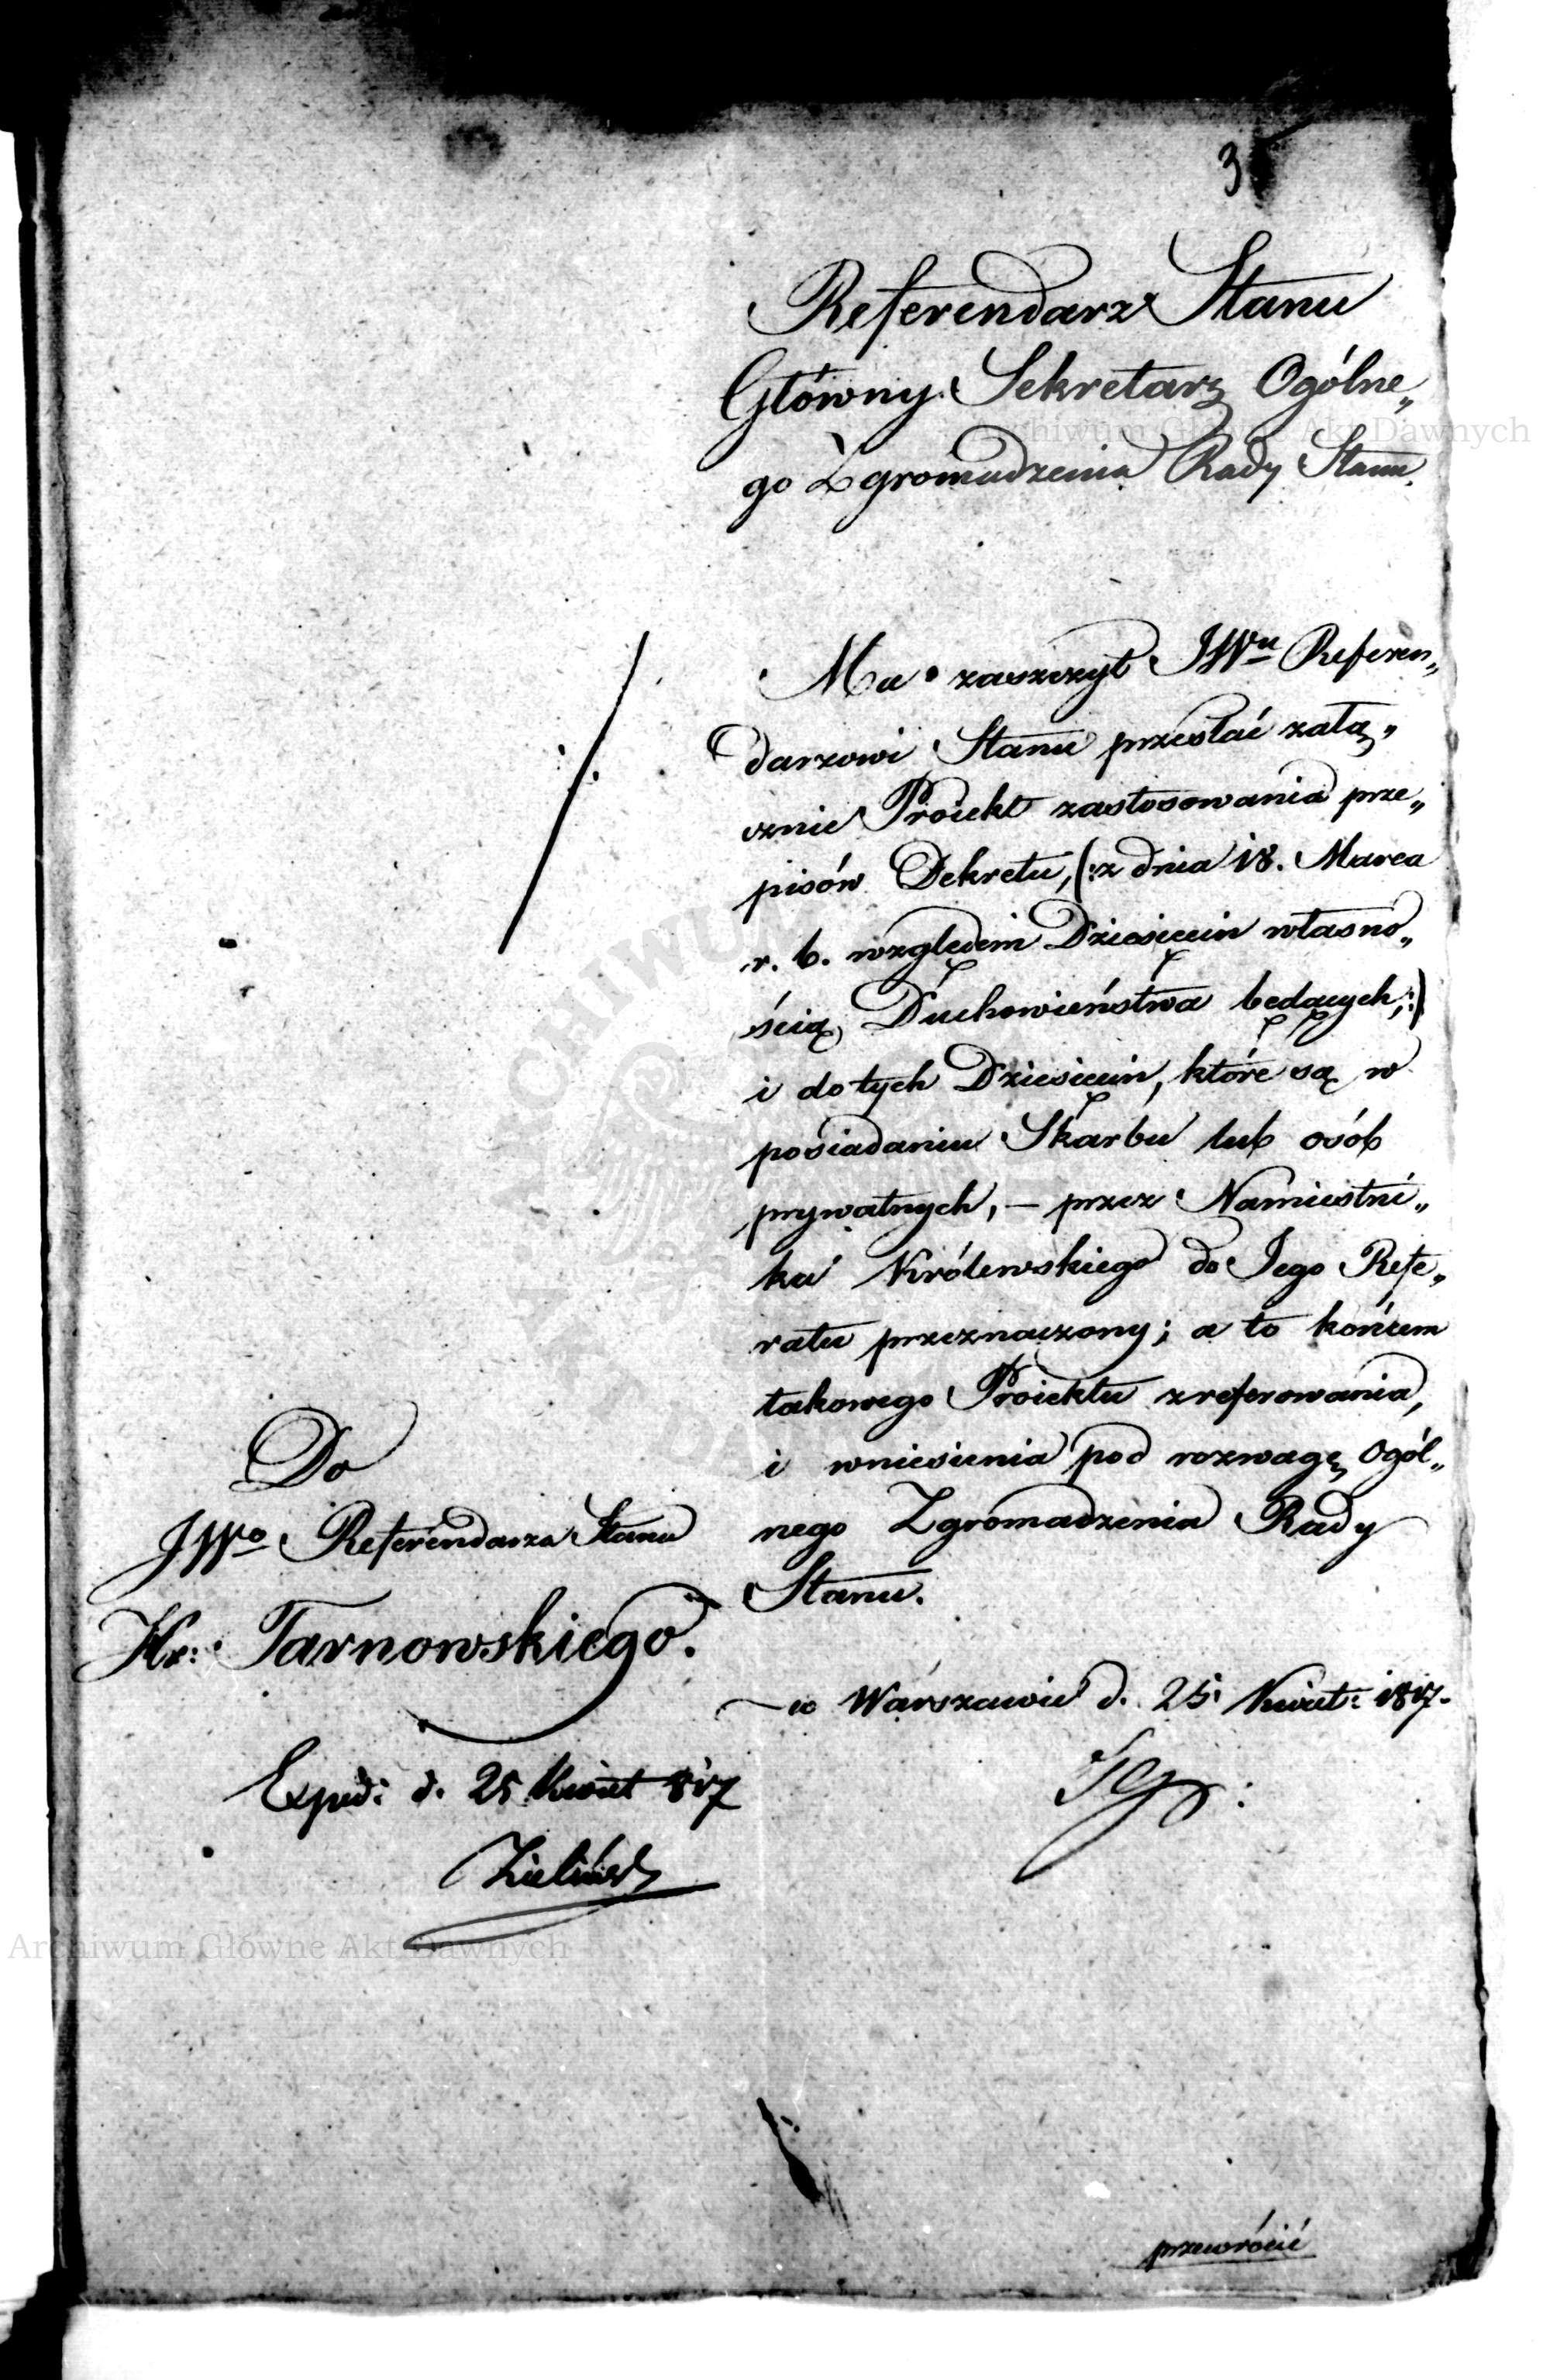 3
Referendarz Stanu
Główny Sekretarz Ogólne„
go Zgromadzenia Rady Stanu.
Ma zaszczyt JWu Referen„
darzowi Stanu przesłać załą„
cznie Proiekt zastosowania prze„
pisów Dekretu, (: z dnia 18. Marca
r. b. względem Dziesięcin własno„
ścią Duchowieństwa będących, :)
i do tych Dziesięcin, które są w
posiadaniu Skarbu lub osób
prywatnych, – przez Namiestni„
ka Królewskiego do Jego Refe„
ratu przeznaczony; a to końcem
takowego Proiektu zreferowania,
i wniesienia pod rozwagę Ogól„
nego Zgromadzenia Rady
Stanu.
w Warszawie d. 25 Kwiet: 1817.
Do
JWo Referendarza Stanu
Hr: Tarnowskiego.
Exped: d. 25 Kwiet 817
Zieliński
przewrócić
Archiwum Główne Akt Dawnych
Archiwum Główne Akt Dawnych